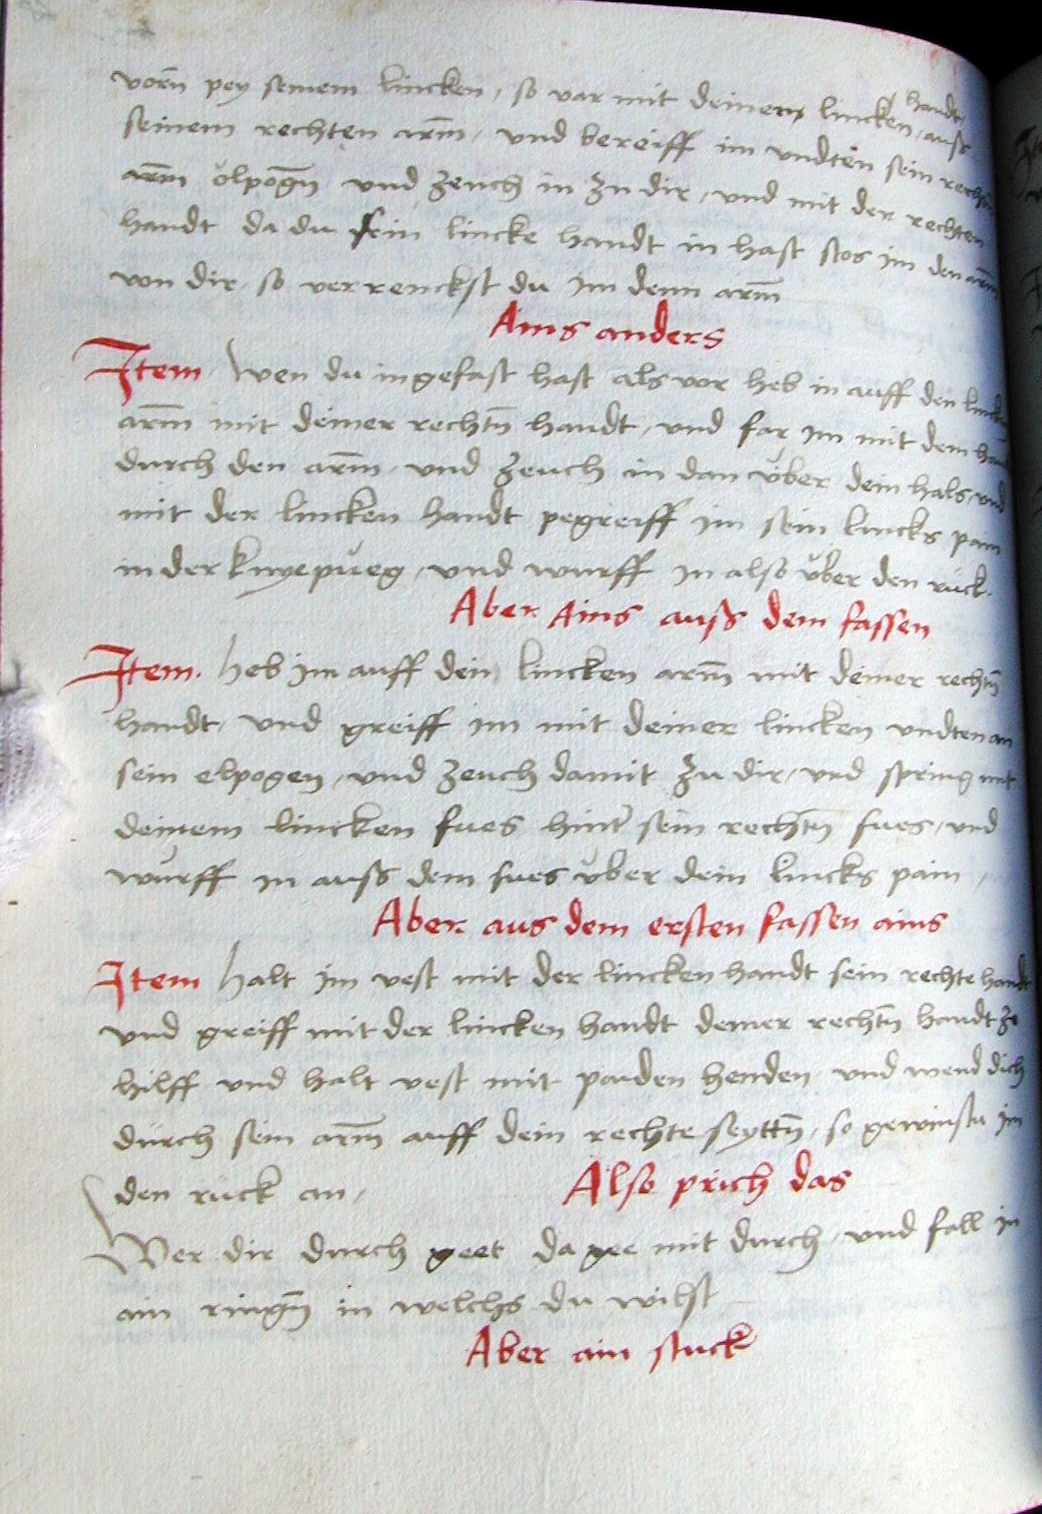 vorn̄ pey seinem lincken, so var mit deinem lincken handt, auß
seinem rechten arm̄, und bereiff im undten sein rechtn̄
arm̄ ölpogn̄ und zeuch in zu dir, und mit der rechten
handt da du sein lincke handt in hast stos im den arm̄
von dir, so verrenckst du im denn arm̄
Ains anders
Item Wen du in gefast hast als vor heb in auff den linckn̄
arm̄ mit deiner rechtn̄ handt, und far im mit dem
durch den arm̄, und zeuch in dan über dein hals, und
mit der lincken handt pegreiff im sein lincks pain
in der knyepüeg, und wurff in also über den rück.
Aber Ains auß dem fassen
Item. heb im auff den lincken arm̄ mit deiner rechtn̄
handt, und greiff im mit deiner lincken undten an
sein elpogen, und zeuch damit zu dir, und spring mit
deinem lincken fues hintr̄ sein rechtn̄ fues, und
würff in auß dem fues über dein lincks pain,
Aber aus dem ersten fassen ains
Item halt im vest mit der lincken handt sein rechte handt
und greiff mit der lincken handt deiner rechtn̄ handt ze
hilff und halt vest mit paiden henden und wend dich
durch sein arm̄ auff dein rechte seyttn̄, so gewinstu im
den rück an,
Also prich das
Wer dir durch geet da gee mit durch, und fall in
ain ringn̄ in welchs du wilst
Aber ain stuck